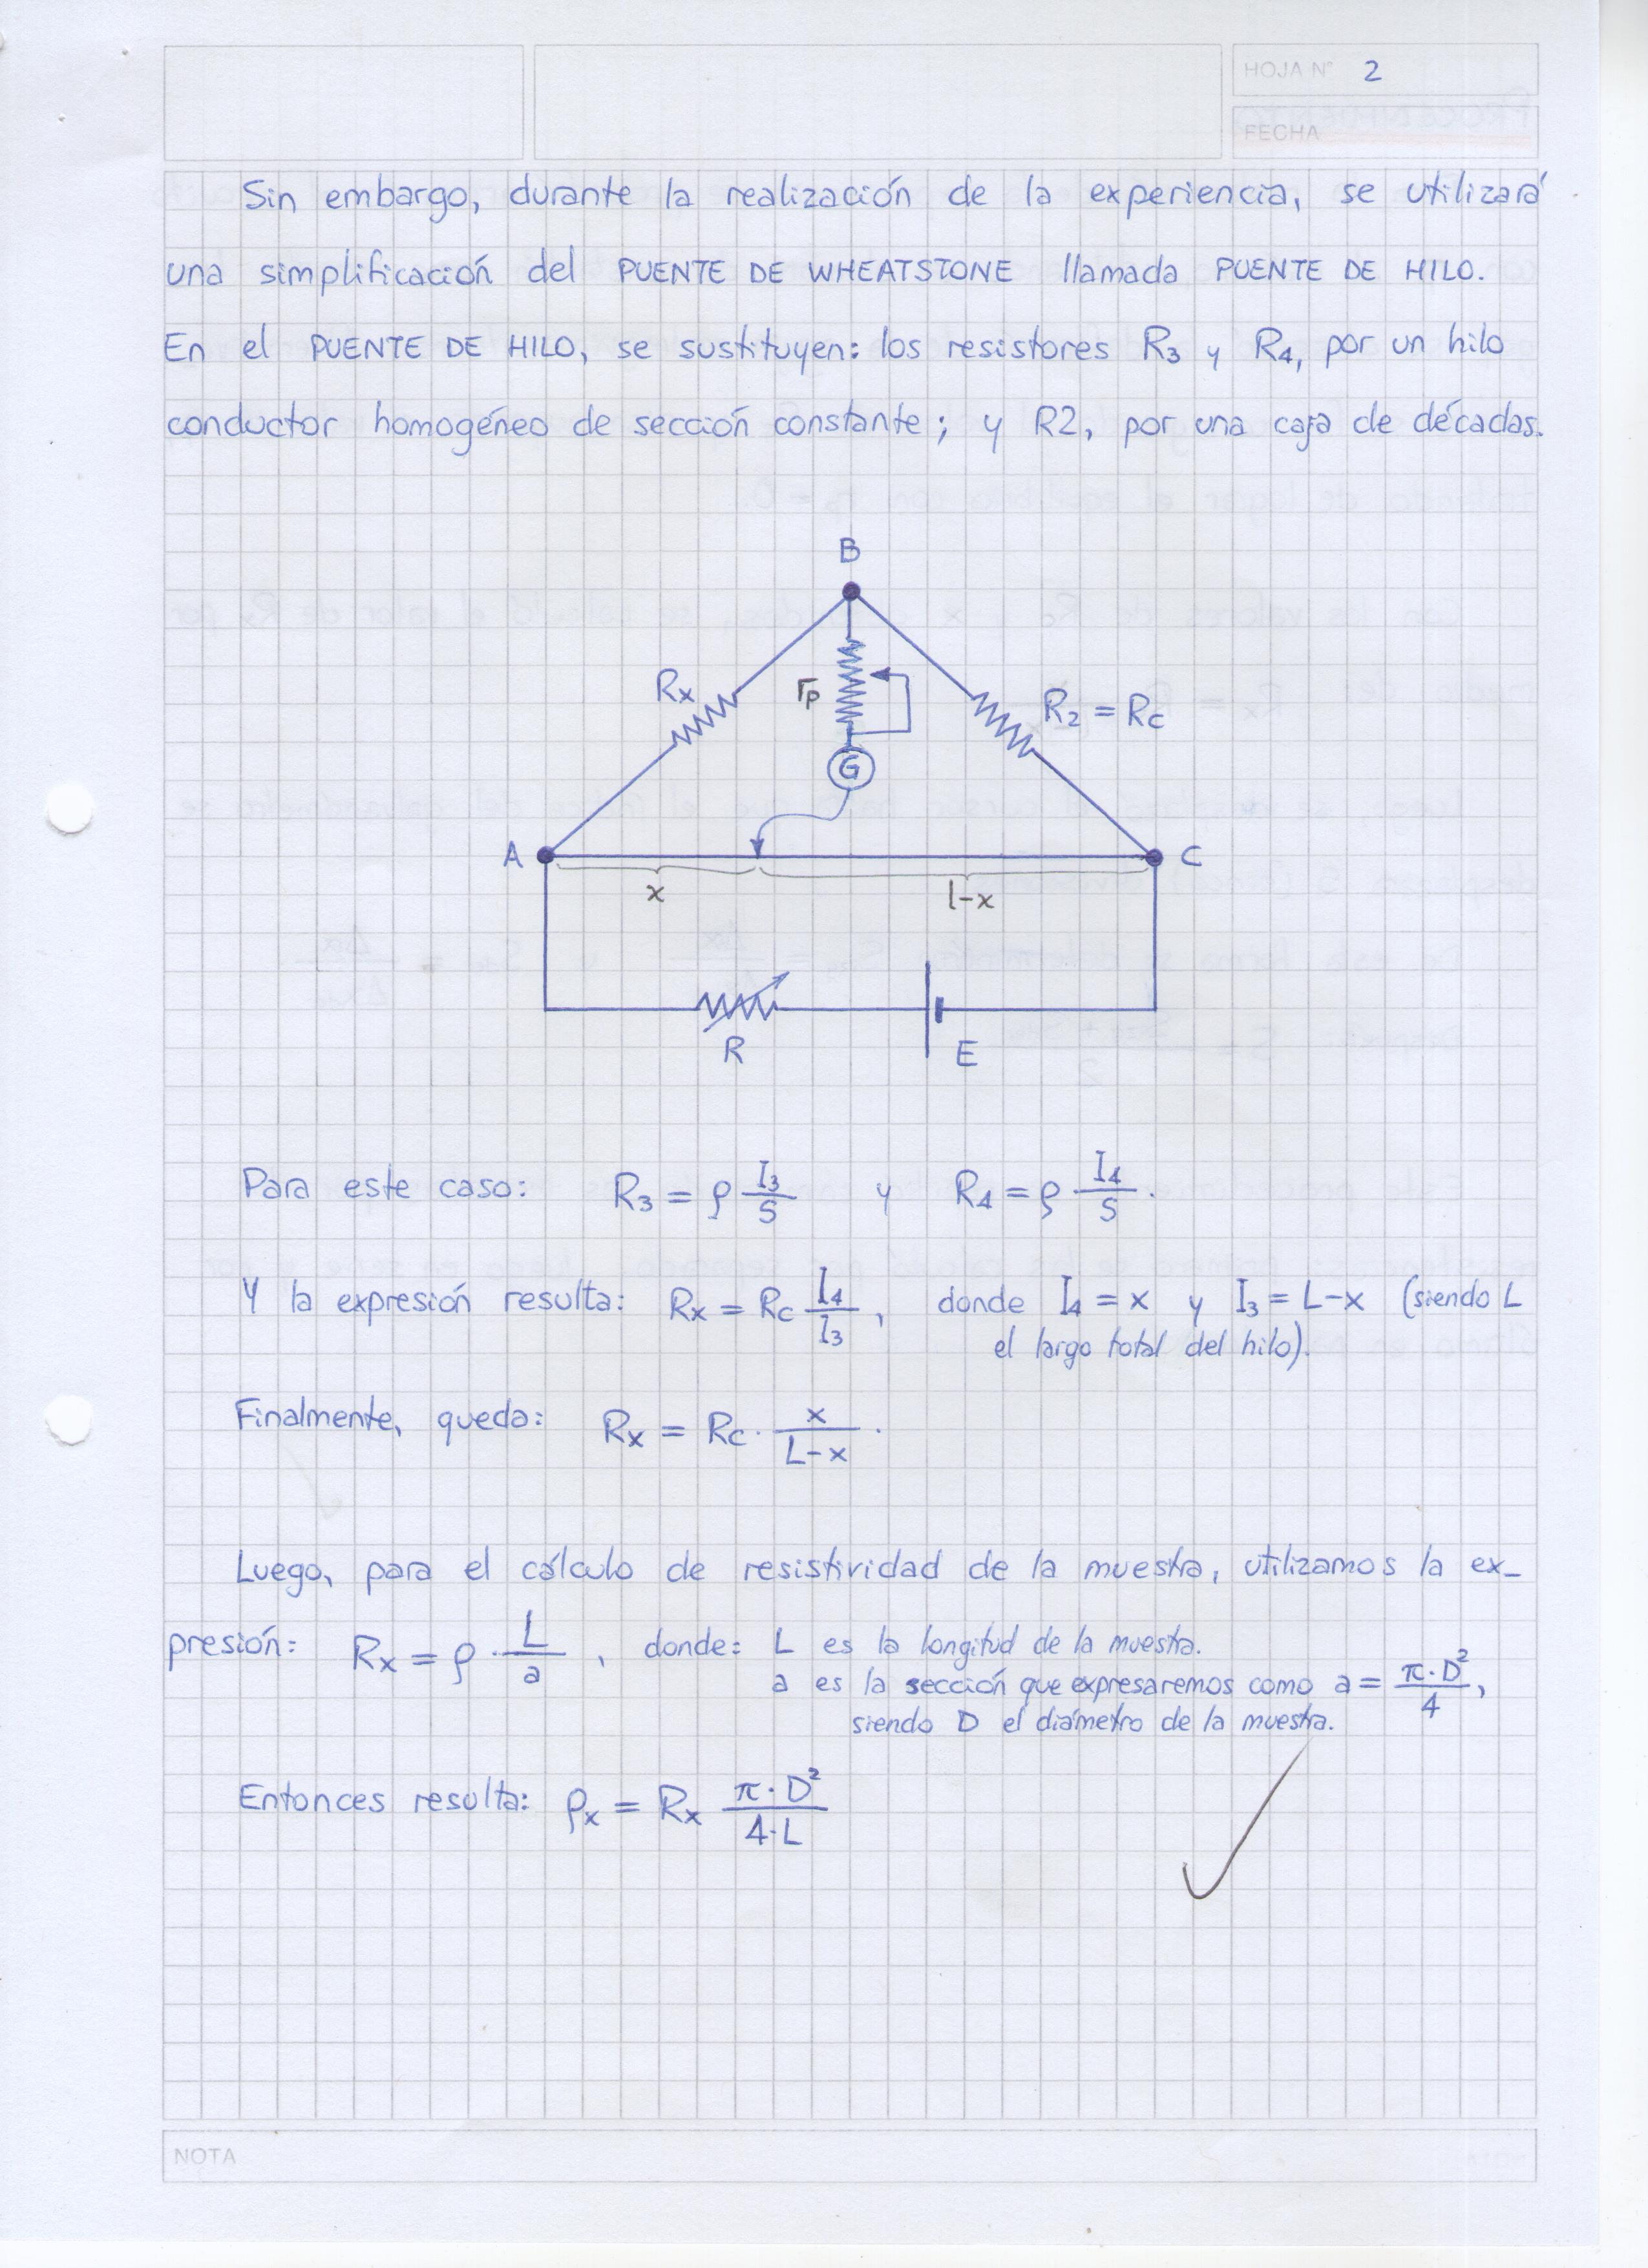 HOJA Nº 2
FECHA
Sin embargo, durante la realización de la experiencia, se utilizará
una simplificación del PUENTE DE WHEATSTONE llamada PUENTE DE HILO.
En el PUENTE DE HILO, se sustituyen: los resistores R₃ y R₄, por un hilo
conductor homogéneo de sección constante; y R2, por una caja de décadas.
B
Rx
rp
R₂ = Rc
G
A
C
x
l-x
R
E
Para este caso: R₃ = ρ I₃/S y R₄ = ρ · I₄/S.
Y la expresión resulta: Rx = Rc I₄/I₃, donde I₄ = x y I₃ = L-x (siendo L
el largo total del hilo).
Finalmente, queda: Rx = Rc · x/(L-x).
Luego, para el cálculo de resistividad de la muestra, utilizamos la ex-
presión: Rx = ρ · L/a, donde: L es la longitud de la muestra.
a es la sección que expresaremos como a = π·D²/4,
siendo D el diámetro de la muestra.
Entonces resulta: ρx = Rx π·D²/4·L
NOTA